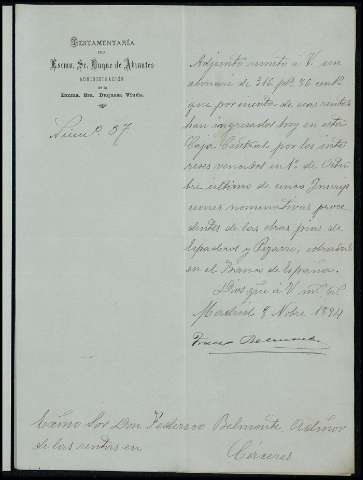 TESTAMENTARÍA
DEL
Excmo. Sr. Duque de Abrantes
ADMINISTRACIÓN
de la
Excma. Sra. Duquesa Viuda.
Núm.º 57
Adjunto remito á V. un
abonaré de 316 pts. 70 cents.
que por cuenta de esas rentas
han ingresado hoy en esta
Caja Central por los inte
reses vencidos en 1º de Octu
bre último de unas Inscrip
ciones nominativas proce
dentes de las obras pías de
Espadero y Pizarro, cobradas
en el Banco de España.
Dios gue á V. ms. as.
Madrid 9 Nbre 1894
Excmo Sor Don Federico Belmonte, Admor
de las rentas en
Cáceres